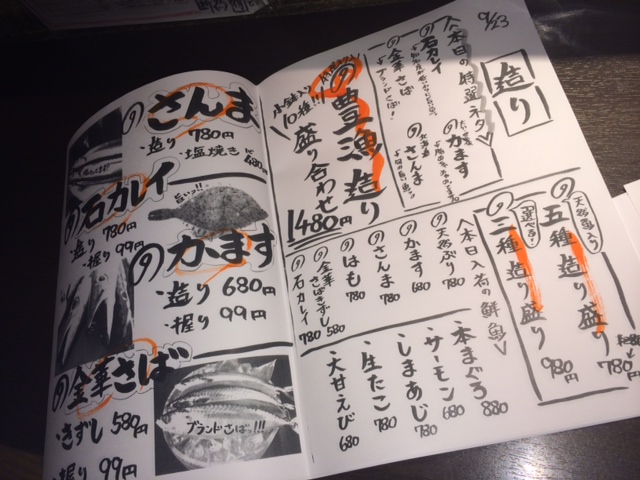 さんま
・造り 780円
・塩焼き 480円
石カレイ
・造り 780円
・握り 99円
かます
・造り 680円
・握り 99円
金華さば
・きずし 580円
・握り 99円
ブランドさばっ!!!
9/23
造り
〈本日の特選ネタ〉
石カレイ
かます
金華さば
さんま
豊漁造り
10種!!!
盛り合わせ
1480円
天然魚入り
五種造り盛り
980円
選べる!
二種造り盛り
780円
〈本日入荷の鮮魚〉
天然ぶり 780
かます 680
さんま 780
はも 780
金華さばきずし 580
石カレイ 780
・本まぐろ 880
・サーモン 680
・しまあじ 780
・生たこ 780
・大甘えび 680